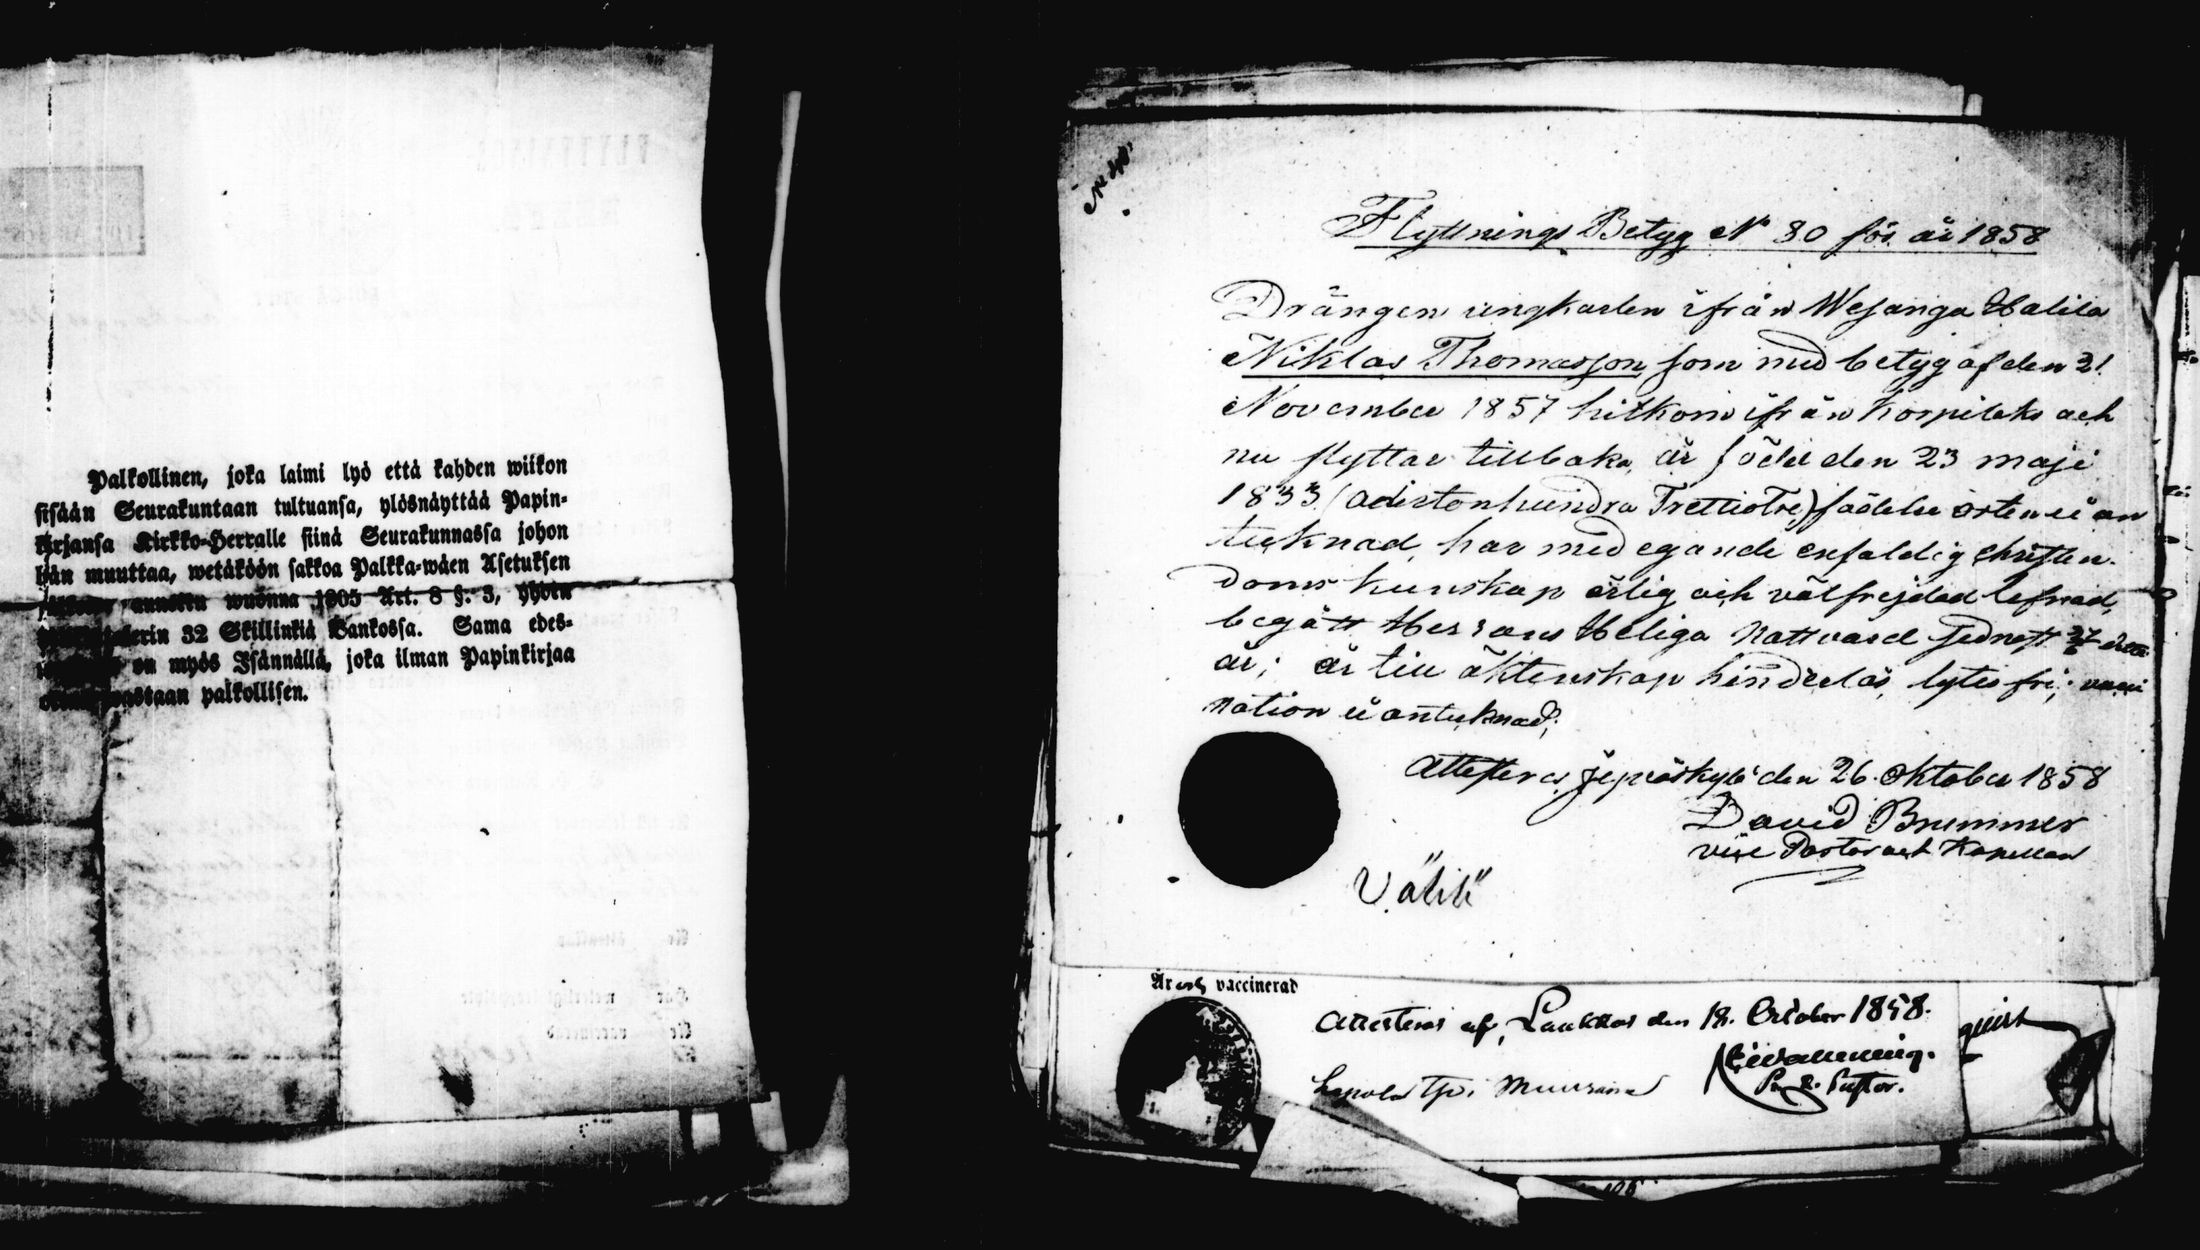 Palkollinen, joka laimi lyö että kahden wiikon
sisään Seurakuntaan tultuansa, ylösnäyttää Papin-
kirjansa Kirkko-Herralle siinä Seurakunnassa johon
hän muuttaa, wetäköön sakkoa Palkka-wäen Asetuksen
wuonna 1805 Art. 8 §. 3, yhden
32 Skillinkiä Bankossa. Sama edes-
on myös Isännällä, joka ilman Papinkirjaa
palkollisen.
Flyttnings Betyg No 80 för år 1858
Drängen ungkarlen ifrån Wesanga Halila
Niklas Thomasson som med betyg af den 21
November 1857 hitkom ifrån Korpilaks och
nu flyttar tillbaka, är född den 23 maji
1833 (adertonhundra Trettiotre) födelse orten ei an
teknad, har med egande enfaldig christen-
doms kunskap ärlig och välfrejdad lefnad,
begått Herrans Heliga Nattvard sednast 27 detta
år; är till äktenskap hinderlös, lytes fri; vacci
nation ei antecknad;
Attesteras Jepuaskylä den 26 Oktober 1858
David Brummer
vice Pastor och Kapellan
Är och vaccinerad
Attesteras af, Laukkas den 18. October 1858.